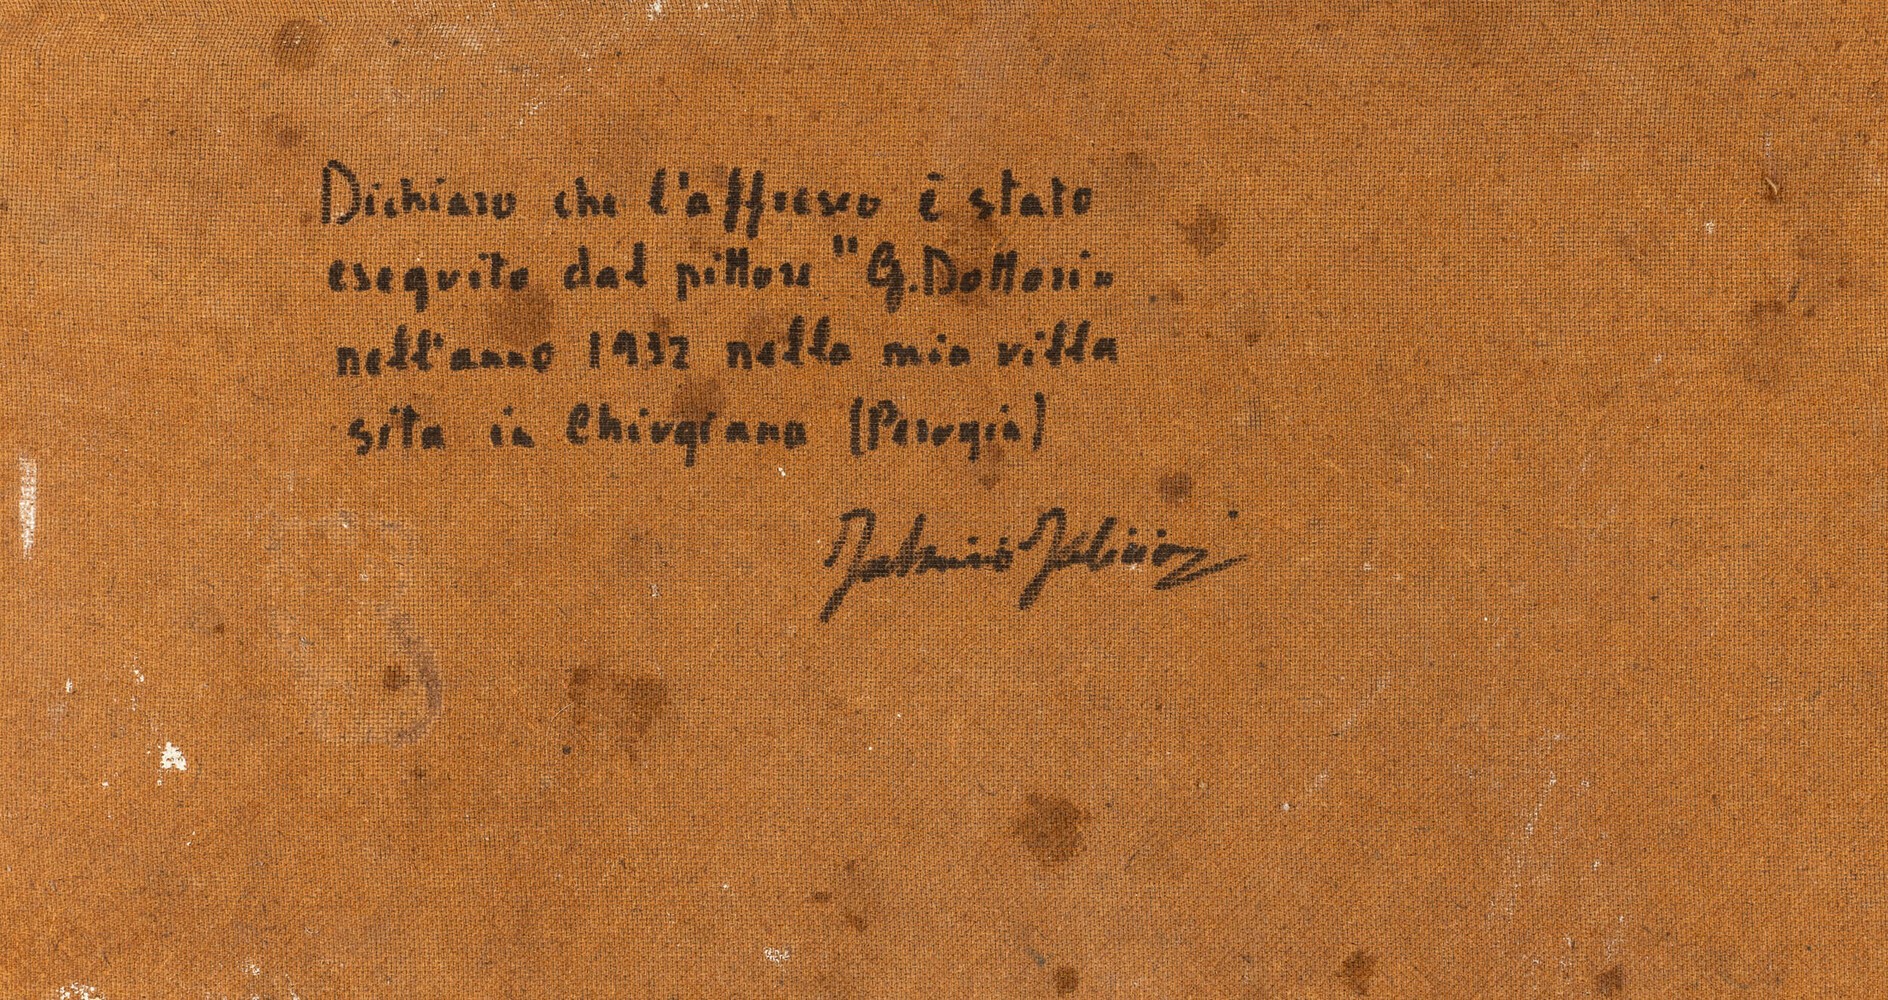 Dichiaro che l'affresco è stato
eseguito dal pittore "G. Dottorio
nell'anno 1932 nella mia villa
sita in Chiugiana (Perugia)